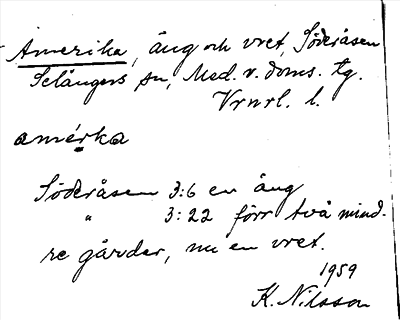 Amerika, äng och vret, Söderåsen
Selångers sn, Med. v. doms. tg.
Vrnrl. l.
amérka
Söderåsen 3:6 en äng
" 3:22 förr två mind-
re gärder, nu en vret.
1959
K. Nilsson